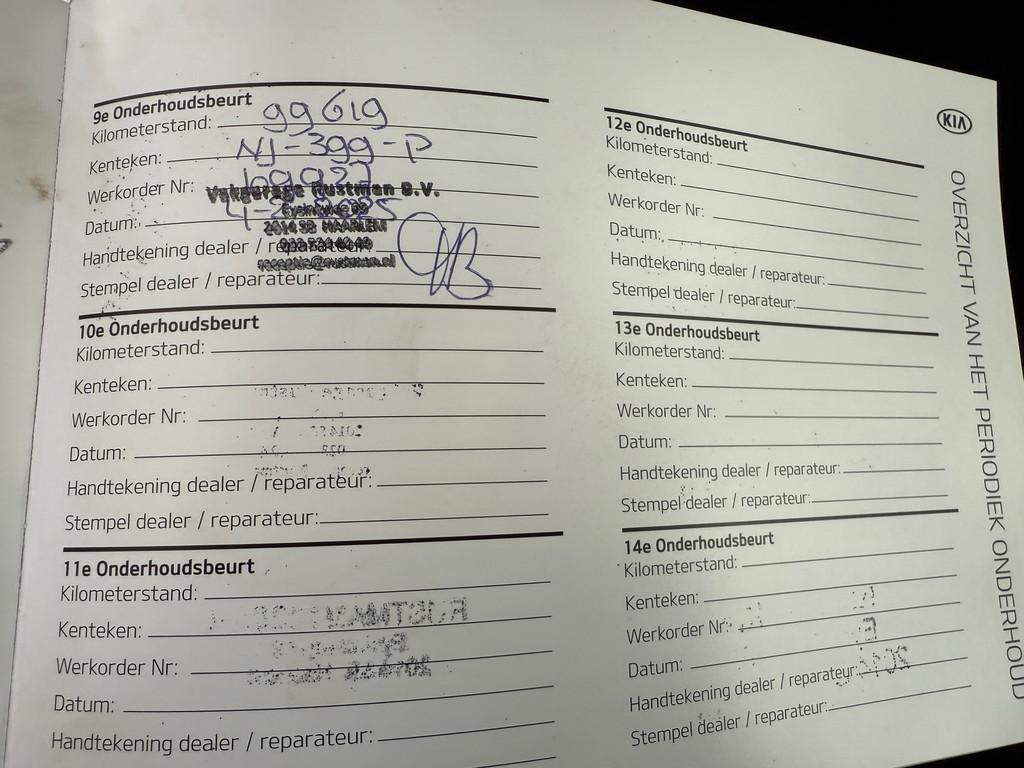 9e Onderhoudsbeurt
Kilometerstand: 99619
Kenteken: NJ-399-P
Werkorder Nr:
Vakgarage Rustman B.V.
Datum:
2014 SB HAARLEM
Handtekening dealer / reparateur:
receptie@rustman.nl
Stempel dealer / reparateur:
10e Onderhoudsbeurt
Kilometerstand:
Kenteken:
Werkorder Nr:
Datum:
Handtekening dealer / reparateur:
Stempel dealer / reparateur:
11e Onderhoudsbeurt
Kilometerstand:
Kenteken:
Werkorder Nr:
Datum:
Handtekening dealer / reparateur:
12e Onderhoudsbeurt
Kilometerstand:
Kenteken:
Werkorder Nr:
Datum:
Handtekening dealer / reparateur:
Stempel dealer / reparateur:
13e Onderhoudsbeurt
Kilometerstand:
Kenteken:
Werkorder Nr:
Datum:
Handtekening dealer / reparateur:
Stempel dealer / reparateur:
14e Onderhoudsbeurt
Kilometerstand:
Kenteken:
Werkorder Nr:
Datum:
Handtekening dealer / reparateur:
Stempel dealer / reparateur:
KIA
OVERZICHT VAN HET PERIODIEK ONDERHOUD